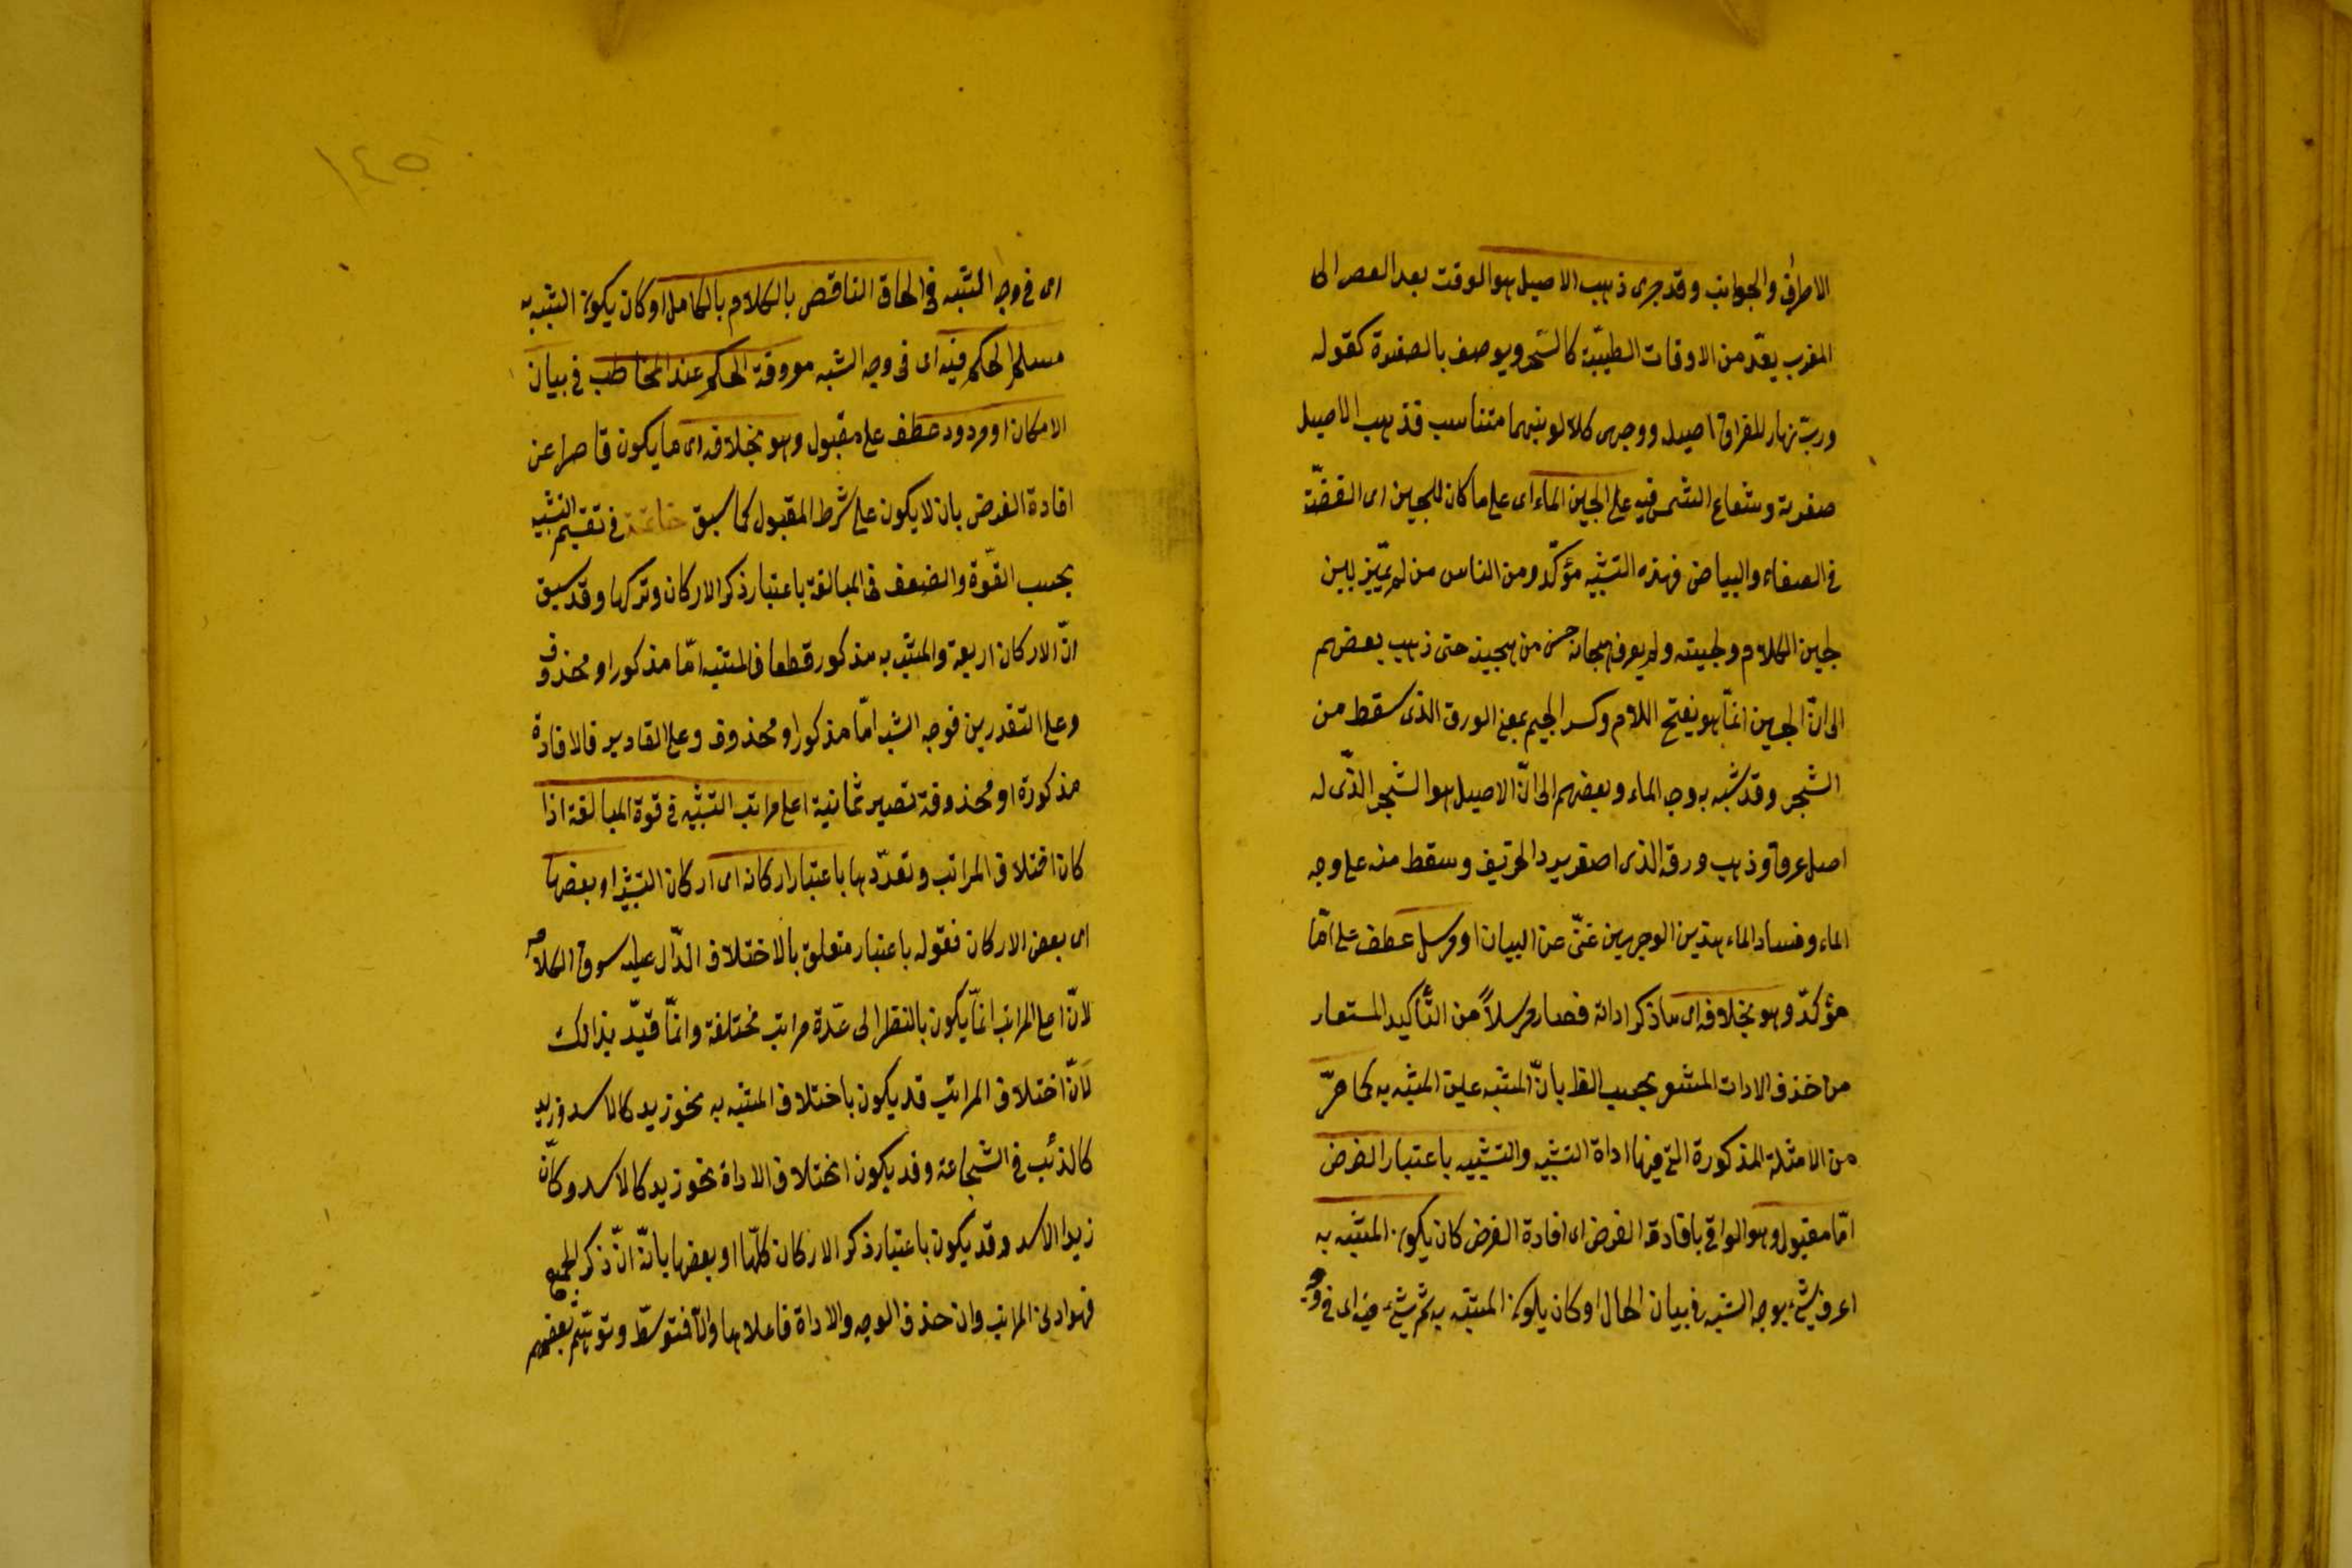 الاطراف والجوانب وقد جرى ذهب الاصيل هو الوقت بعد العصر الى
المغرب يعدّ من الاوقات الطيبة كالسّحر ويوصف بالصفرة كقوله
وربّ نهار للفراق اصيله ووجهى كلا لونيهما متناسب فذهب الاصيل
صفرته وشعاع الشمس فيه على لجين الماء اى على ما كان للجين اى الفضّة
فى الصفاء والبياض فهذه التشبيه مؤكّد ومن الناس من لم يميّز بين
لجين الكلام ولجينه ولم يعرف هجانه من هجينه حتى ذهب بعضهم
الى انّ لجين انّما هو بفتح اللام وكسر الجيم بمعنى الورق الذى سقط من
الشجر وقد شبه به وجه الماء وبعضهم الى انّ الاصيل هو الشجر الذّى له
اصل عرق وذهب ورقه الذى اصفر ببرد الخريف وسقط منه على وجه
الماء وفساد الماء هذين الوجهين غنىّ عن البيان او مرسل عطف على امّا
مؤكدّ وهو بخلافه اى ما ذكر اداته فصار مرسلاً من التّأكيد المستعار
من حذف الادات المشعر بحسب الظ بانّ المشبه عين المشبه به كما مرّ
من الامثلة المذكورة التى فيها اداة التشبيه والتشبيه باعتبار الغرض
امّا مقبول وهو الوافى بافادة الغرض اى افادة الغرض كان يكون المشبه به
اعرف شئ بوجه الشبه فى بيان الحال او كان يكون المشبه به اتم شئ فيه اى فى وجه
١٤٥
اى فى وجه الشبه فى الحاق الناقص بالكلام بالكامل او كان يكون المشبه به
مسلم الحكم فيه اى فى وجه الشبه معروفة الحكم عند المخاطب فى بيان
الامكان او مردود عطف على مقبول وهو بخلافه اى ما يكون قاصرا عن
افادة الغرض بان لا يكون على شرط المقبول كما سبق خاتمة فى تقسيم التشبيه
بحسب القوّة والضعف فى المبالغة باعتبار ذكر الاركان وتركها وقد سبق
انّ الاركان اربعة والمشبه به مذكور قطعا فالمشبه امّا مذكور او محذوف
وعلى التقدرين فوجه الشبه امّا مذكور او محذوف وعلى التقادير فالافادة
مذكورة او محذوفة تصير ثمانية اعلى مراتب التشبيه فى قوة المبالغة اذا
كان اختلاف المراتب وتعدّدها باعتبار اركانه اى اركان التشبيه او بعضها
اى بعض الاركان فقوله باعتبار متعلق بالاختلاف الدّال عليه سوق الكلام
لانّ اعلى المراتب انمّا يكون بالنظر الى عدّة مراتب مختلفة وانمّا قيدّ بذالك
لانّ اختلاف المراتب قد يكون باختلاف المشبه به نحو زيد كالاسد وزيد
كالذئب فى الشجاعة وقد يكون اختلاف الاداة نحو زيد كالاسد وكانّ
زيدا الاسد وقد يكون باعتبار ذكر الاركان كلّها او بعضها بانّه انّ ذكر الجميع
فهو ادنى المراتب وان حذف الوجه والاداة فاعلاها والّا فمتوسطّ وتوهّم بعضهم